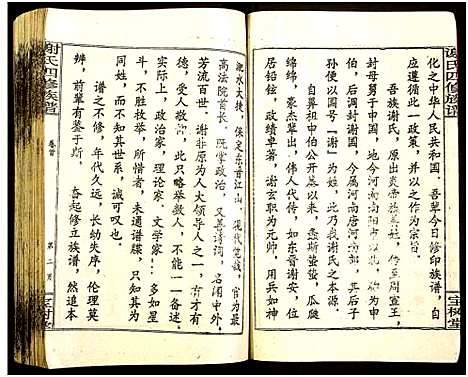 谢氏四修族谱
宝树堂
化之中华人民共和国。吾辈今日修印族谱，自
应遵循此一政策，并以之作为宗旨。
吾族谢氏，原出炎帝
传至周宣王，
封母舅于申，地今河南南阳市以申为
伯，后调封谢国，今属河南唐河县，子孙
便以国号「谢」为姓，此乃我谢氏之本源。
自鼻祖申伯公开基以来，螽斯蛰蛰，瓜瓞
绵绵，豪杰辈出，伟人代传，如东晋谢安，位
居铨敍，政绩卓著，谢玄职为元帅，用兵如神
淝水大捷，保定东晋江山，现代党哉，官为最
高法院首长，既掌政治，又善诗词，名闻中外，
芳流百世。谢非原为人大领导人之一，才有大
德，受人敬仰，此略举数人，不能一一备述。
实际上，政治家，理论家，文学家……多
不胜枚举，所惜者，未通谱牒，只知其
同姓，而不知其世系，诚可叹也。
谱之不修，年代久远，长幼失序，伦理莫
辨，前辈有鉴于斯，奋起修立族谱，然追本
谢氏四修族谱
卷首
第二页
宝树堂